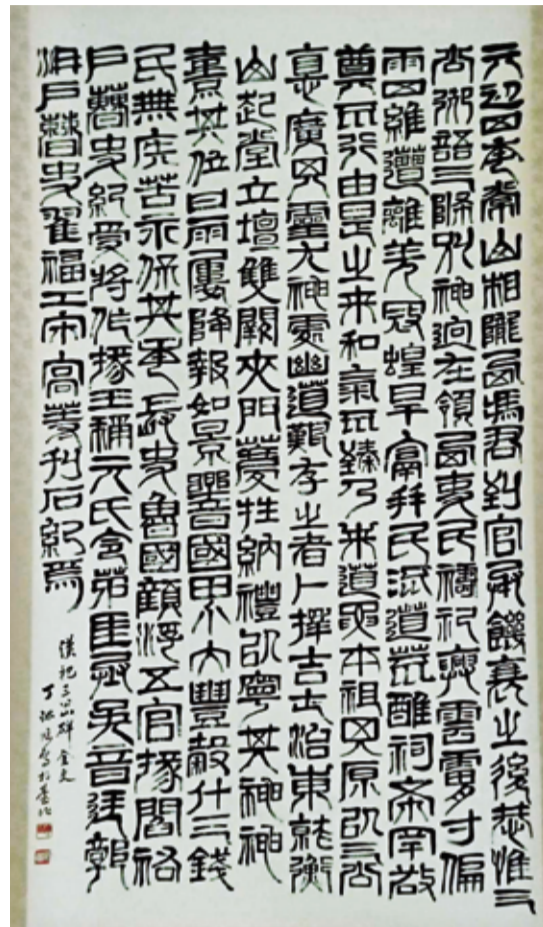 元初四年常山相隴西馮君到官承饑衰之後恭惟三
公御語三條別神迥在領西吏民禱祀興雲膚寸偏
雨四維遭離羌寇蝗旱鬲并民流道荒醮祠希罕敬
奠不行由是之来和氣不臻乃来道要本祖其原以三公
惪廣其靈尤神處幽道艱存之者卜擇吉土治東就衡
山起堂立壇雙闕夾門薦牲納禮以寧其神神
熹其位甘雨屢降報如景響國界大豐穀什三錢
民無疾苦永保其年長史魯國顏浮五官掾閻祐
戶曹史紀受將作掾王稱元氏令茅匡丞吳音廷郭
洪戶曹史翟福工宋高等刊石紀焉
漢祀三公碑全文
丁書於臺北